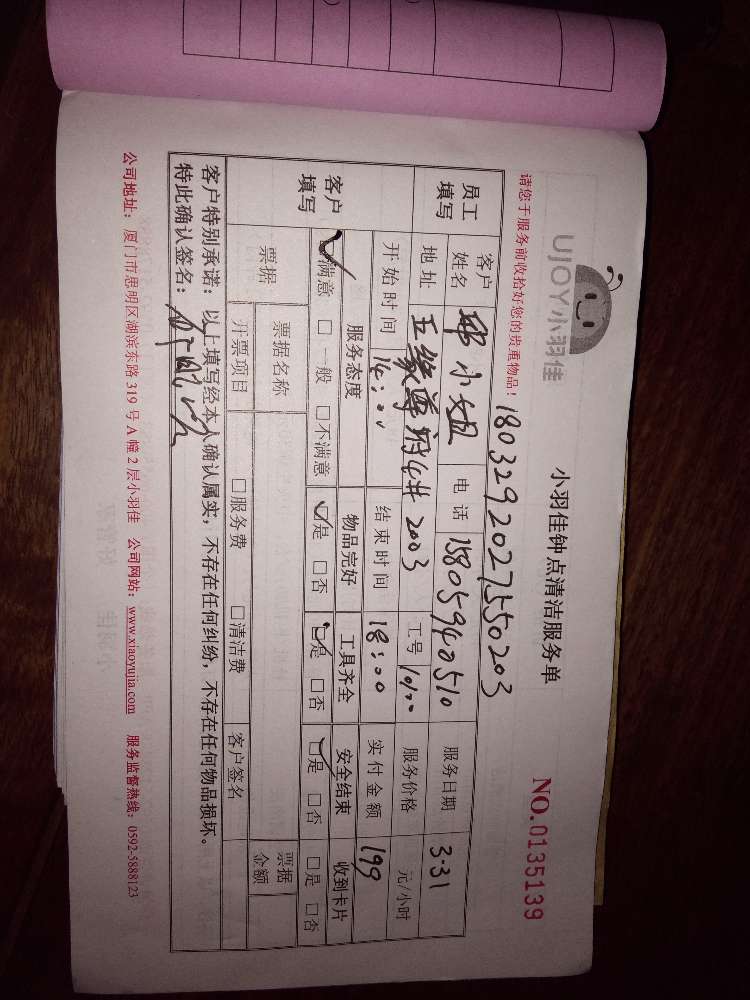 UJOY小羽佳
小羽佳钟点清洁服务单
NO.0135139
请您于服务前收拾好您的贵重物品!
180329202755 0203
员工填写 客户姓名 小姐 电话 15805940510 服务日期 3.31
地址 五缘尊府 2003 工号 服务价格 元/小时
客户填写 开始时间 14:00 结束时间 18:00 实付金额 199
服务态度 物品完好 工具齐全 安全结束 收到卡片
□满意 □一般 □不满意 □是 □否 □是 □否 □是 □否 □是 □否
票据 票据名称 票据金额
开票项目 □服务费 □清洁费 客户签名
客户特别承诺:以上填写经本人确认属实,不存在任何纠纷,不存在任何物品损坏。
特此确认签名:
公司地址:厦门市思明区湖滨东路 319 号 A 幢 2 层小羽佳 公司网站:www.xiaoyujia.com 服务监督热线:0592-5888123